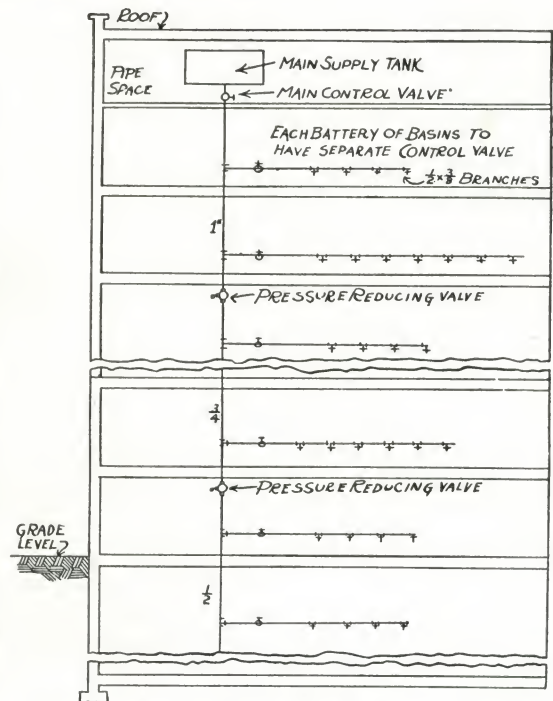 ROOF
PIPE
SPACE
MAIN SUPPLY TANK
MAIN CONTROL VALVE
EACH BATTERY OF BASINS TO
HAVE SEPARATE CONTROL VALVE
1/2 x 3/8 BRANCHES
1"
PRESSURE REDUCING VALVE
3/4
PRESSURE REDUCING VALVE
GRADE
LEVEL
1/2